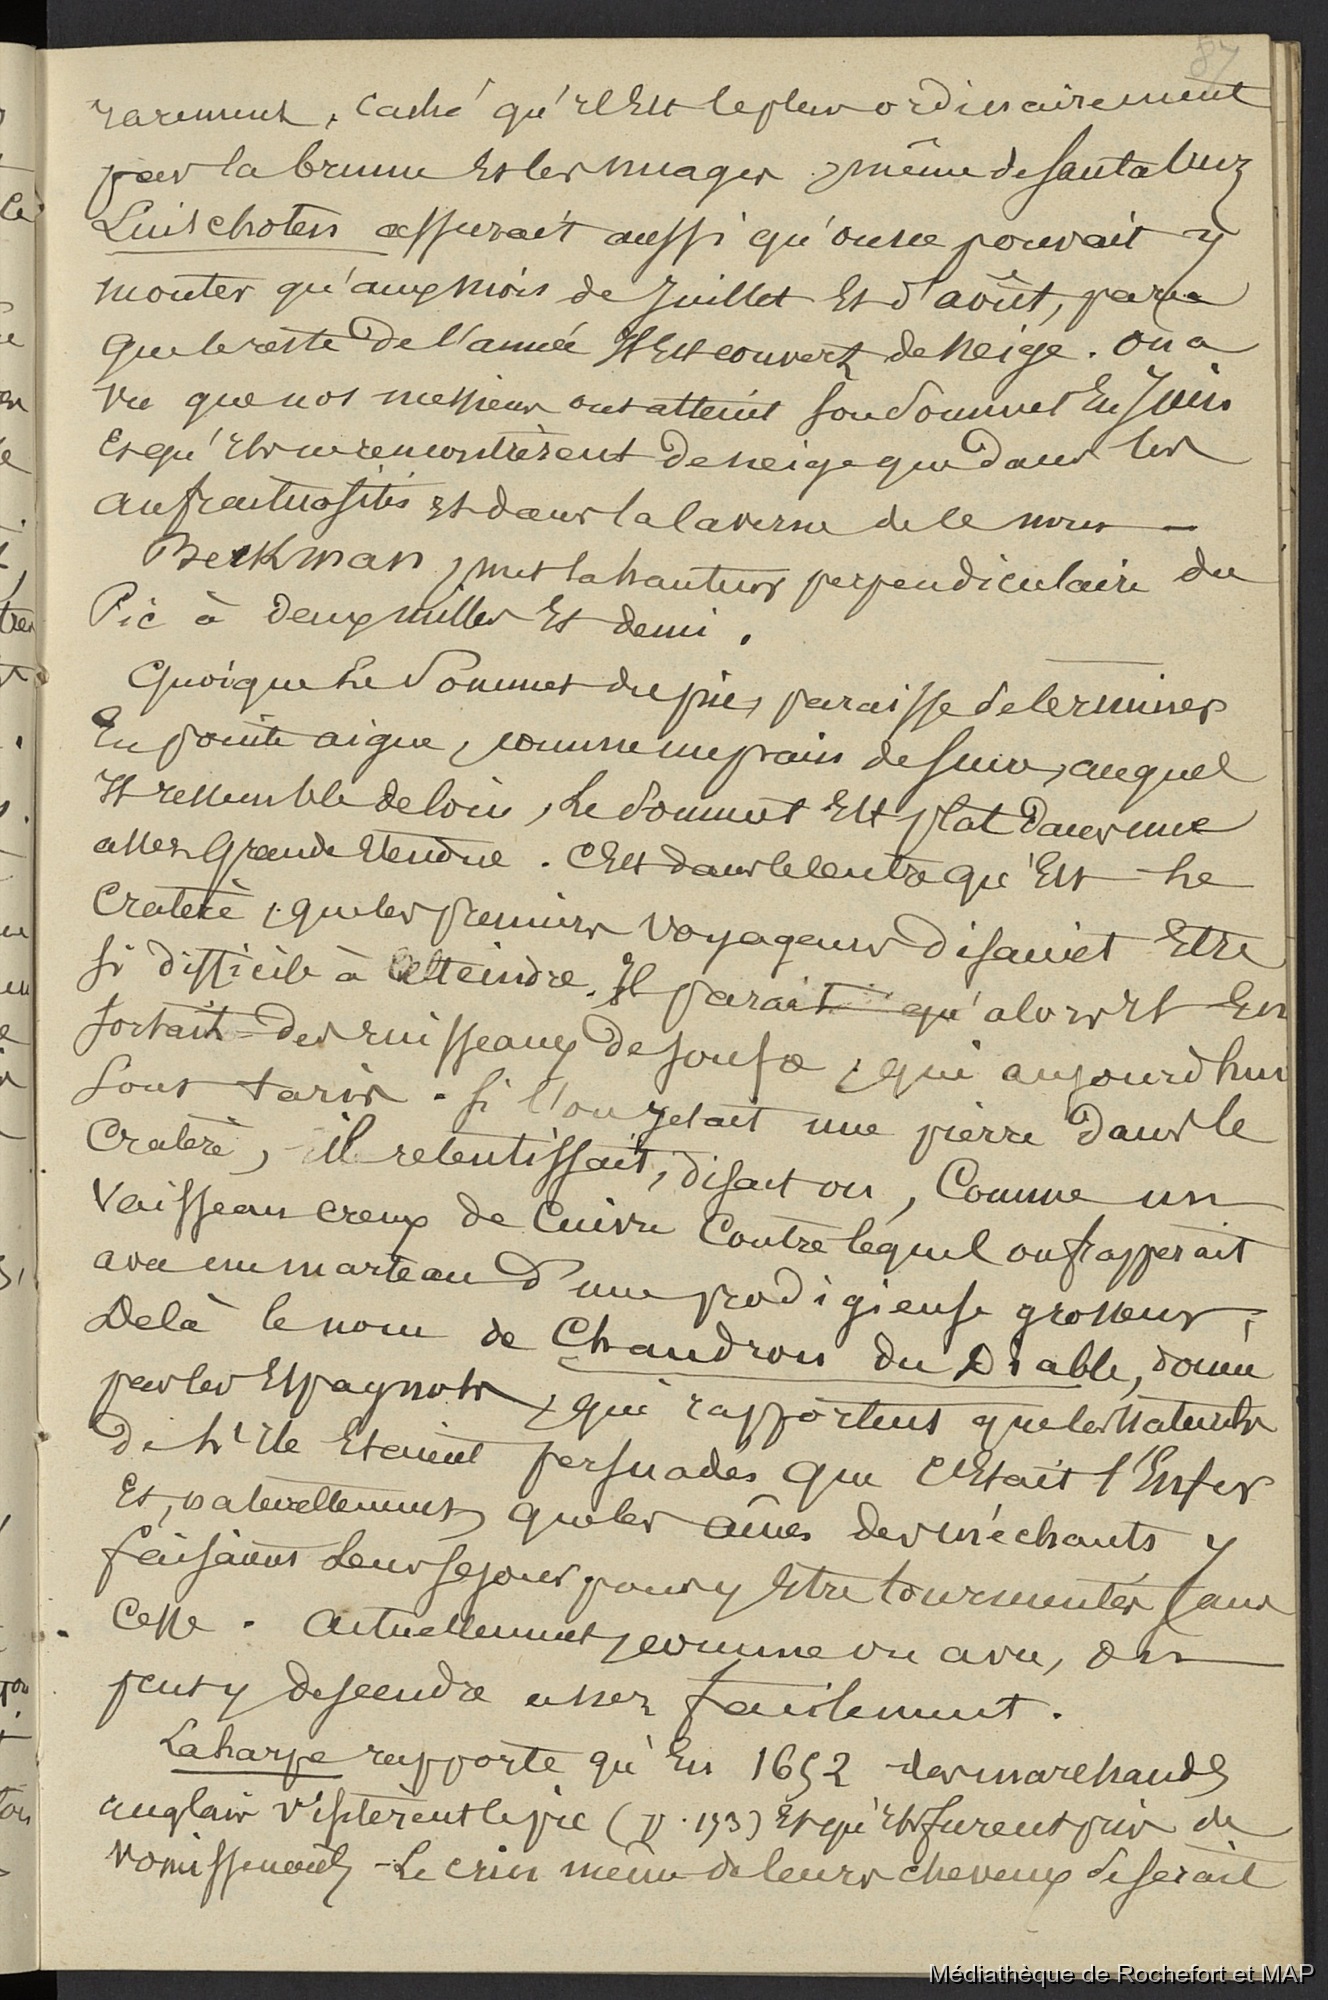 87
rarement, caché qu'il est le plus ordinairement
par la brume et les nuages, même de Santa Cruz
Linschoten assurait aussi qu'on ne pouvait y
monter qu'aux mois de Juillet et d'août, parce
que le reste de l'année Il est couvert de neige. On a
vu que nos messieurs ont atteint son sommet En Juin
et qu'ils ne rencontrèrent de neige que dans les
anfractuosités et dans la caverne de ce nom —
Beckman, met la hauteur perpendiculaire du
Pic à deux milles et demi.
Quoique Le Sommet du pic, paraisse se terminer
En pointe aigue, comme un pain de sucre, auquel
Il ressemble de loin, Le Sommet Est plat dans une
assez Grande Etendue. C'est dans le centre qu'Est Le
Cratère, que les premiers Voyageurs disaient Etre
si difficile à atteindre. Il parait qu'alors il En
sortait des ruisseaux de soufre, qui aujourdhui
sont taris. Si l'on jetait une pierre dans le
Cratère, il retentissait, disait on, Comme un
Vaisseau creux de Cuivre Contre lequel on frapperait
avec un marteau d'une prodigieuse grosseur,
De là le nom de Chaudron du Diable, donné
par les Espagnols, qui rapportent que les naturels
de L'Ile Etaient persuadés que C'Etait l'Enfer
Et, naturellement, que les âmes des méchants y
faisaient Leur sejour, pour y Etre tourmentés sans
Cesse. Actuellement, comme on a vu, on
peut y descendre assez facilement.
Laharpe rapporte qu'En 1652 des marchands
anglais visitèrent le pic (p. 193) Et qu'ils furent pris de
vomissements - Le crin même de leurs cheveux se serait
Médiathèque de Rochefort et MAP